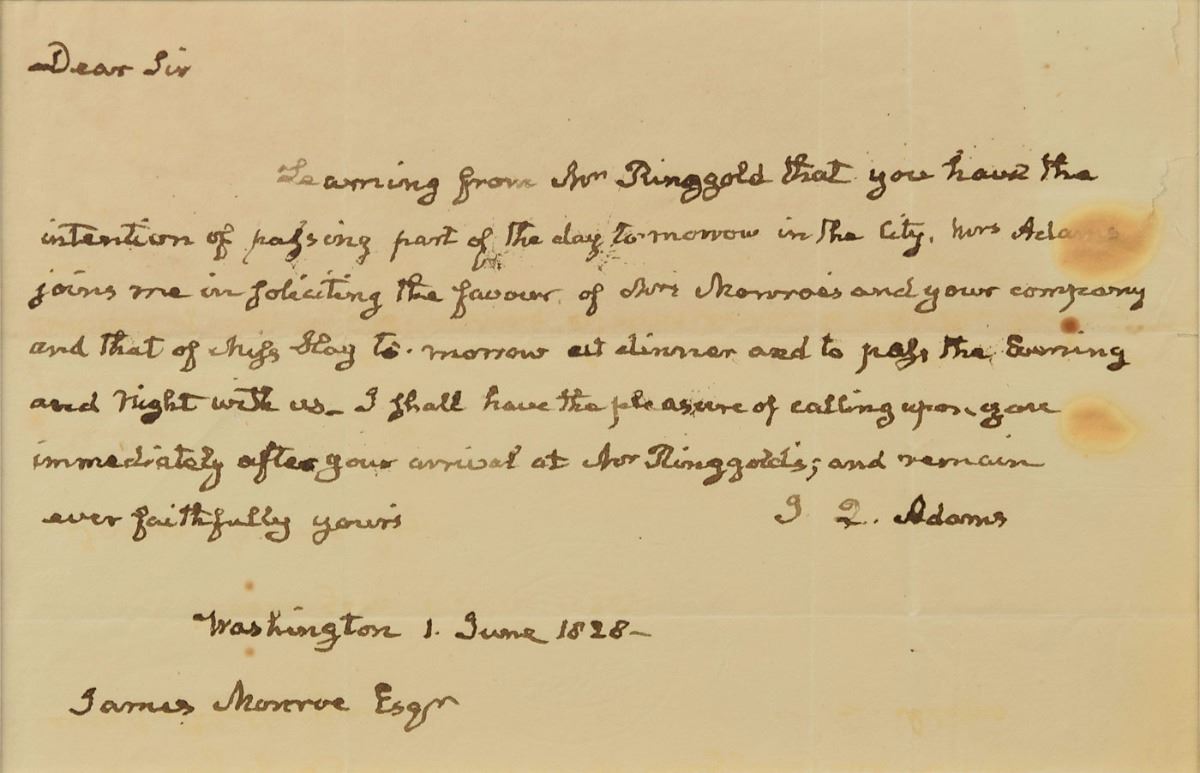 Dear Sir
Learning from Mr Ringgold that you have the
intention of passing part of the day to-morrow in the City, Mrs Adams
joins me in soliciting the favour of Mrs Monroe's and your company
and that of Miss Hay to-morrow at dinner and to pass the Evening
and Night with us_ I shall have the pleasure of calling upon you
immediately after your arrival at Mr Ringgold's; and remain
ever faithfully yours J. Q. Adams
Washington 1. June 1828–
James Monroe Esqr